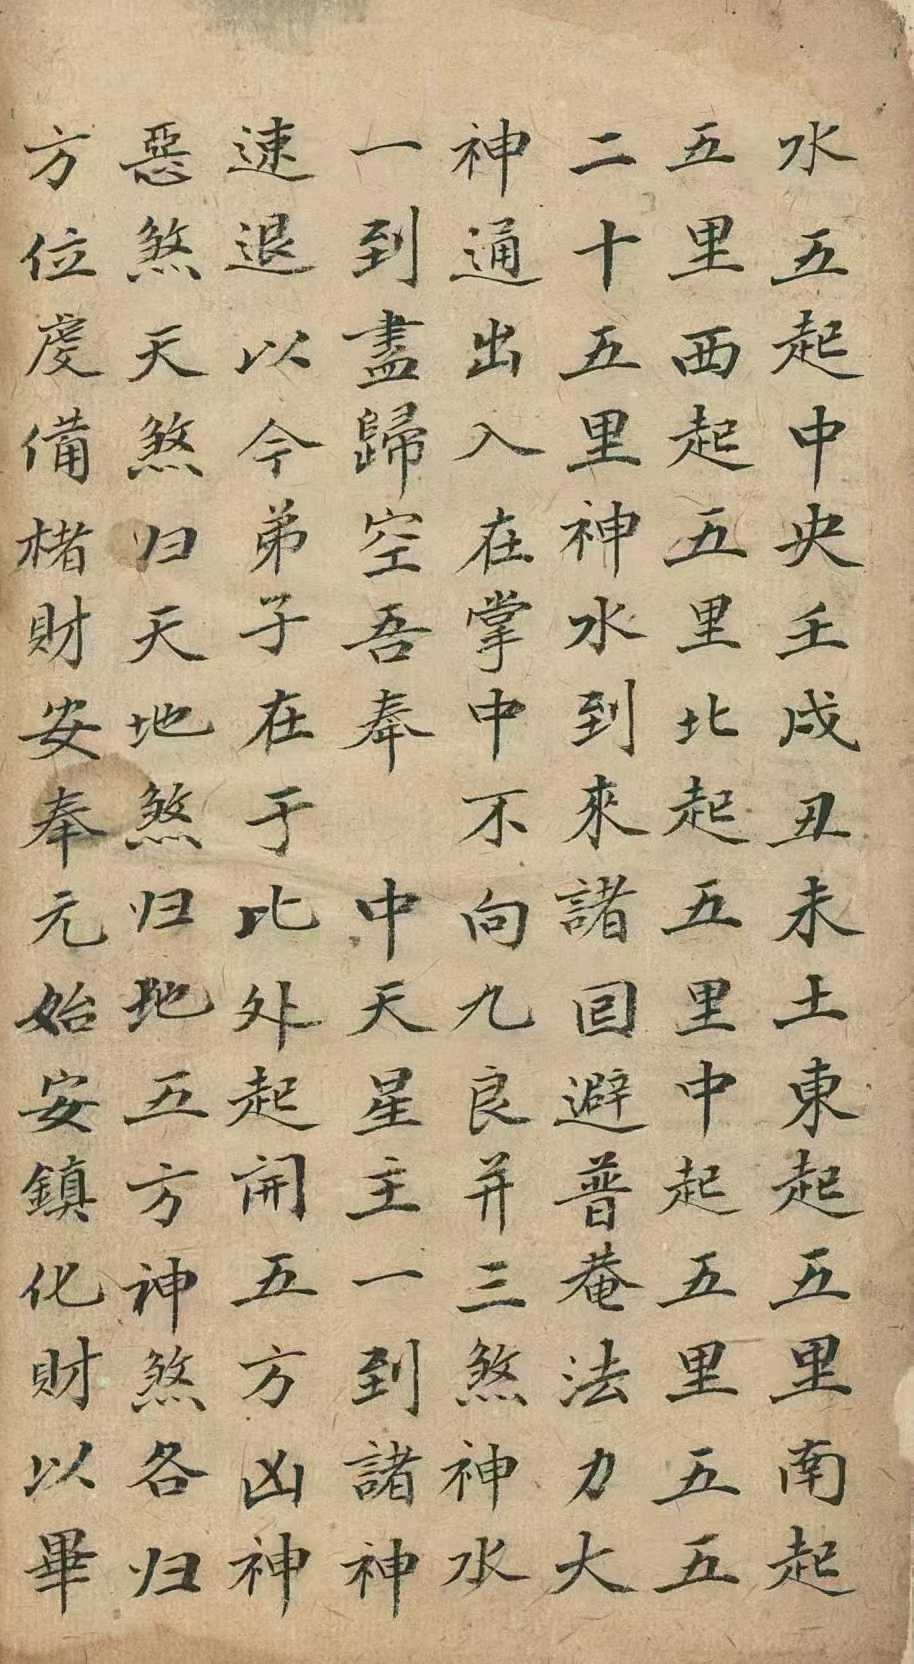 水五起中央壬戌丑未土東起五里南起
五里西起五里北起五里中起五里五五
二十五里神水到來諸回避普菴法力大
神通出入在掌中不向九良并三煞神水
一到盡歸空吾奉　中天星主一到諸神
速退以今弟子在于比外起開五方凶神
惡煞天煞归天地煞归地五方神煞各归
方位虔備楮財安奉元始安鎮化財以畢